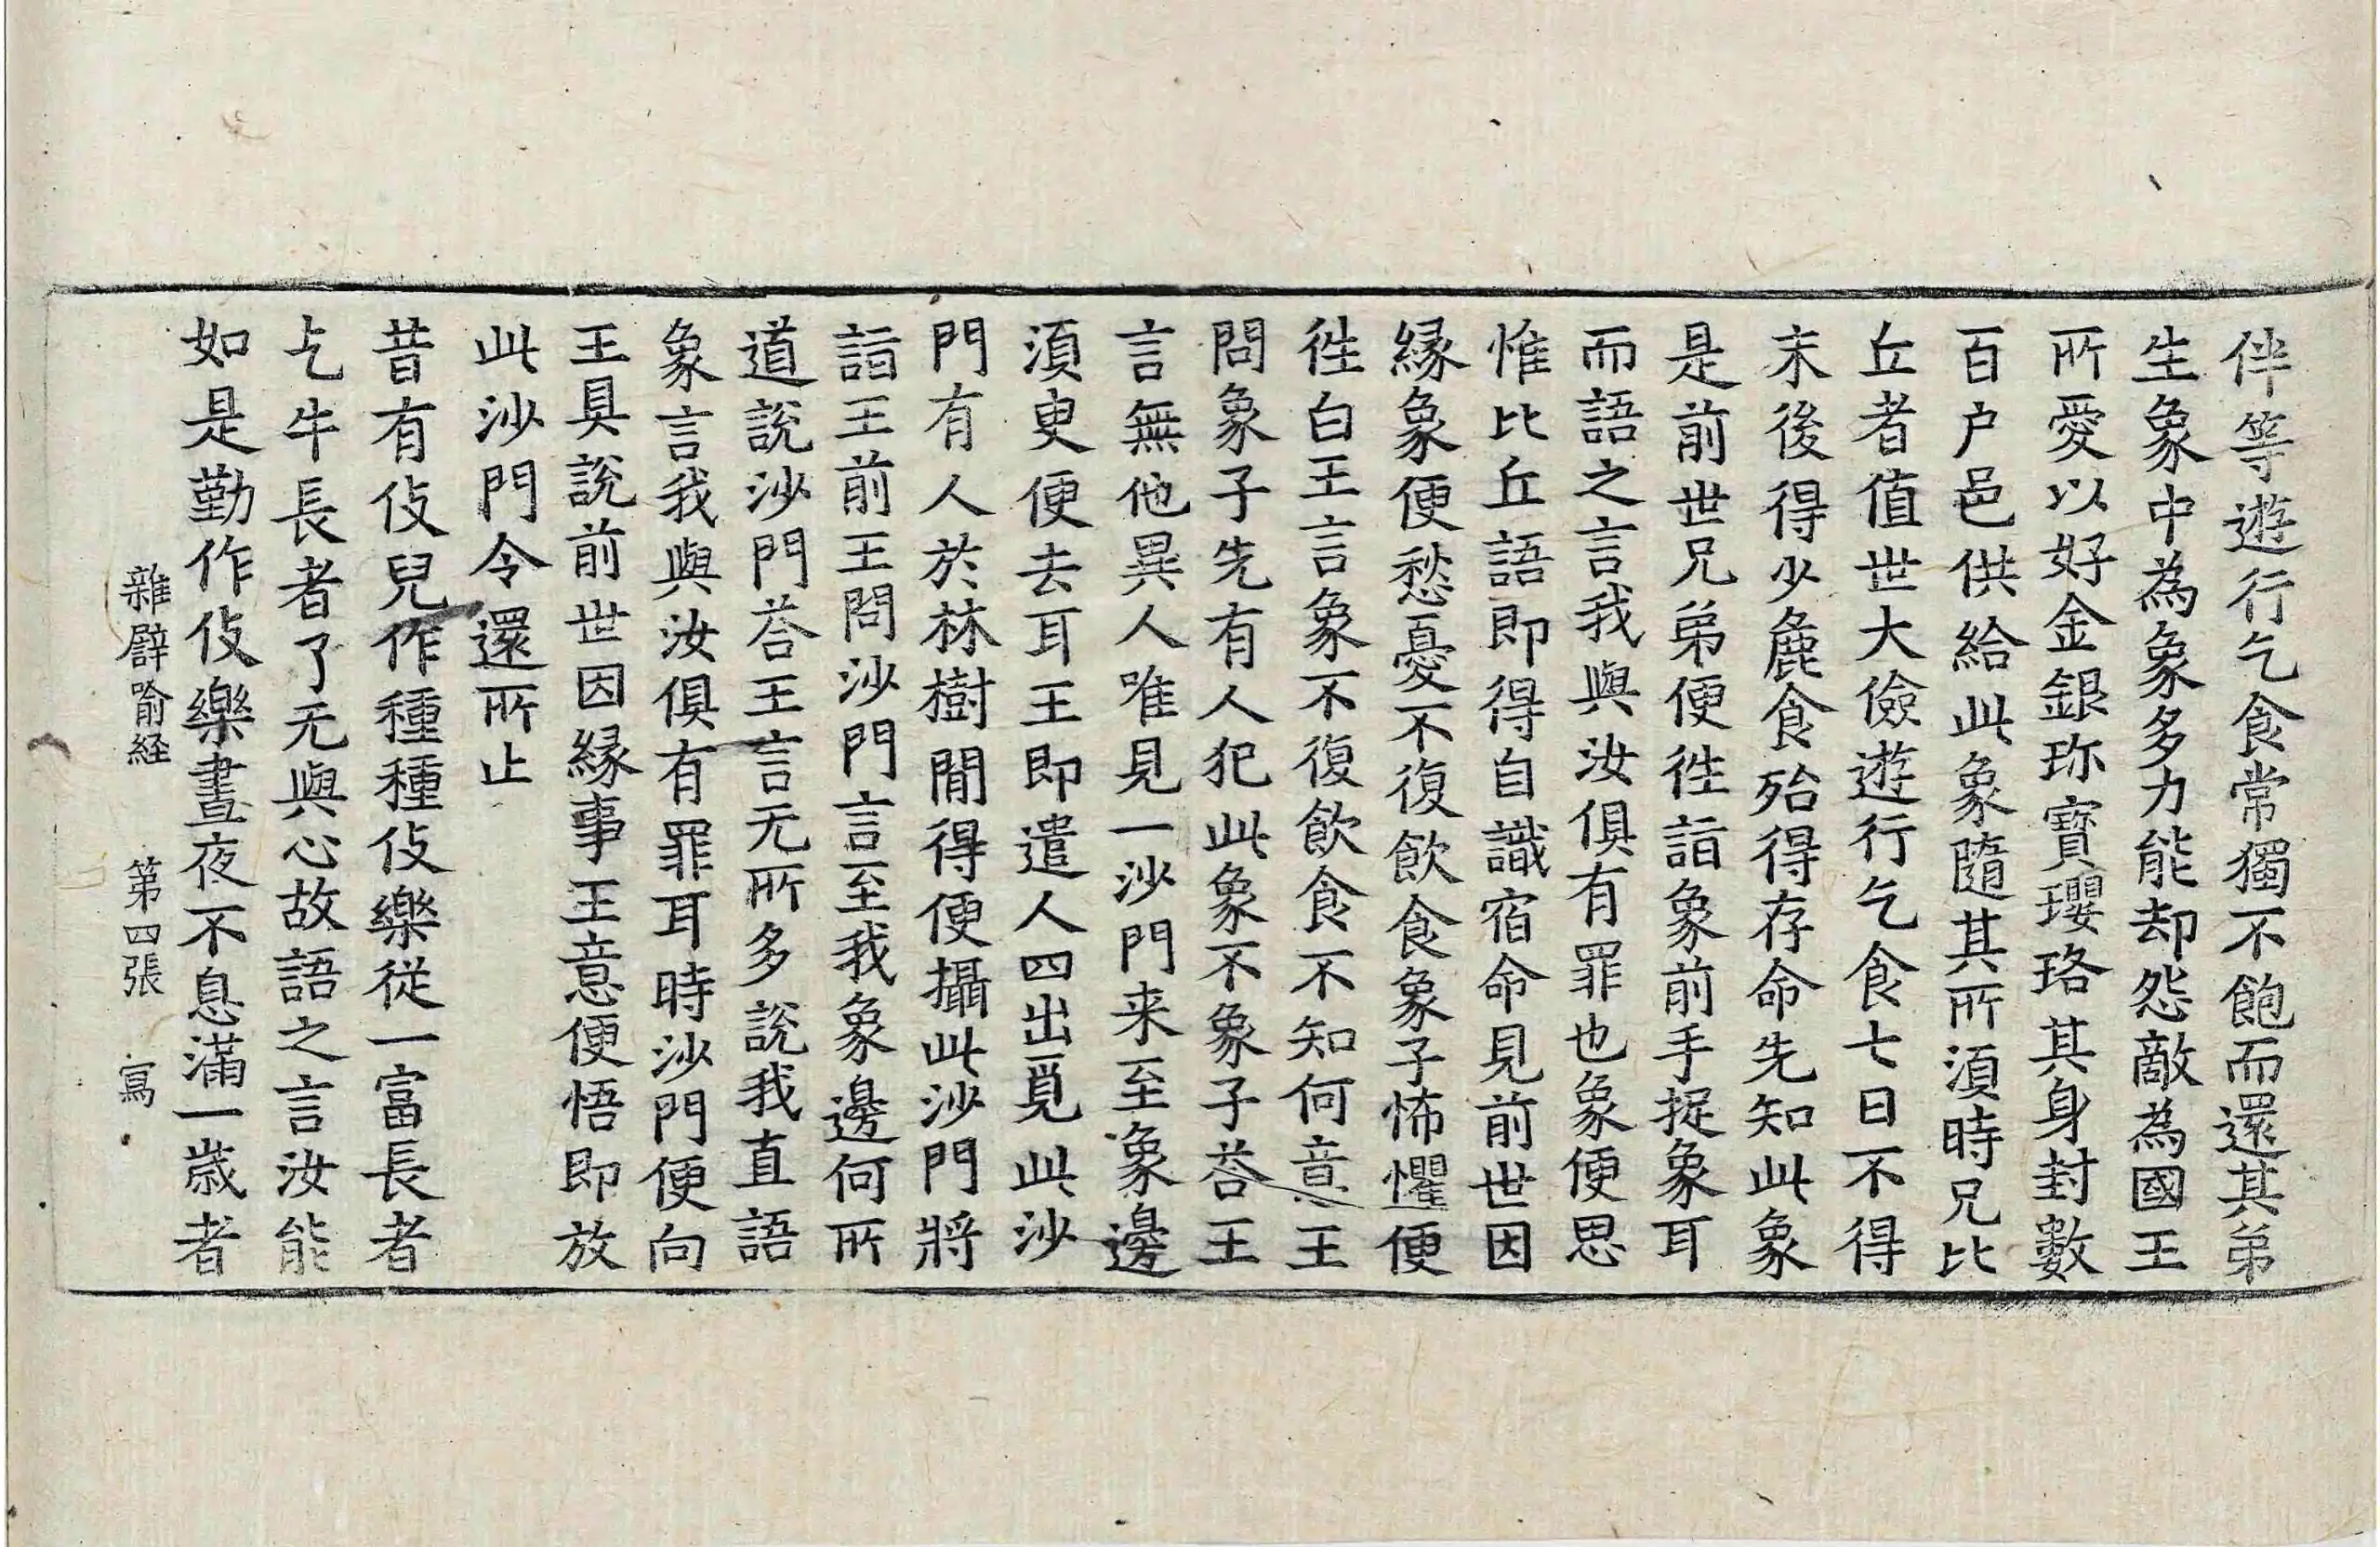 伴等遊行乞食常獨不飽而還其弟
生象中為象多力能却怨敵為國王
所愛以好金銀珎寶瓔珞其身封數
百户邑供給此象隨其所湏時兄比
丘者值世大儉遊行乞食七日不得
末後得少麁食殆得存命先知此象
是前世兄弟便徃詣象前手捉象耳
而語之言我與汝俱有罪也象便思
惟比丘語即得自識宿命見前世因
縁象便愁憂不復飲食象子怖懼便
徃白王言象不復飲食不知何意王
問象子先有人犯此象不象子荅王
言無他異人唯見一沙門来至象邊
湏臾便去耳王即遣人四出覓此沙
門有人於林樹閒得便攝此沙門將
詣王前王問沙門言至我象邊何所
道說沙門荅王言无所多說我直語
象言我與汝俱有罪耳時沙門便向
王具說前世因縁事王意便悟即放
此沙門令還所止
昔有伎兒作種種伎樂從一富長者
乞牛長者了无與心故語之言汝能
如是勤作伎樂晝夜不息滿一歲者
雜辟喻経 第四張 寫